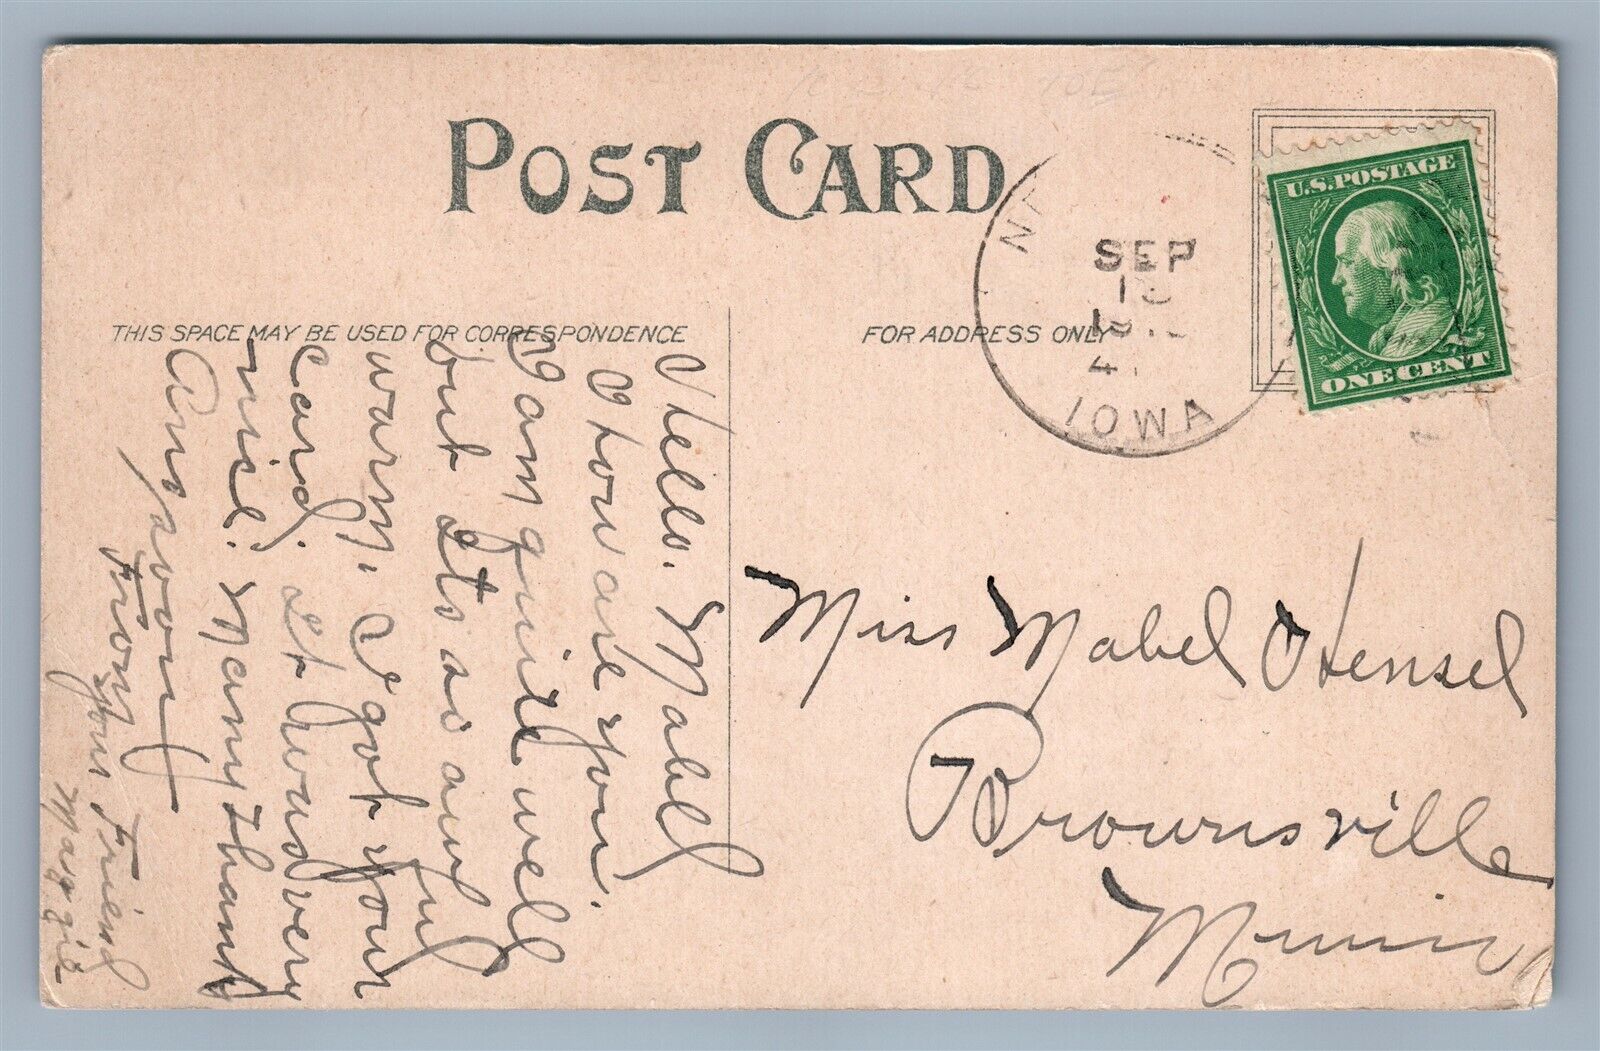 POST CARD
THIS SPACE MAY BE USED FOR CORRESPONDENCE
FOR ADDRESS ONLY
SEP
4
IOWA
U.S. POSTAGE
ONE CENT
Hello. Mabel
How are you.
I am quite well
but Its so awful
warm. I got your
card. It was very
nice. Many thanks
Ans soon
From
Your Friend
Maggie
Miss Mabel Hensel
Brownsville
Minn